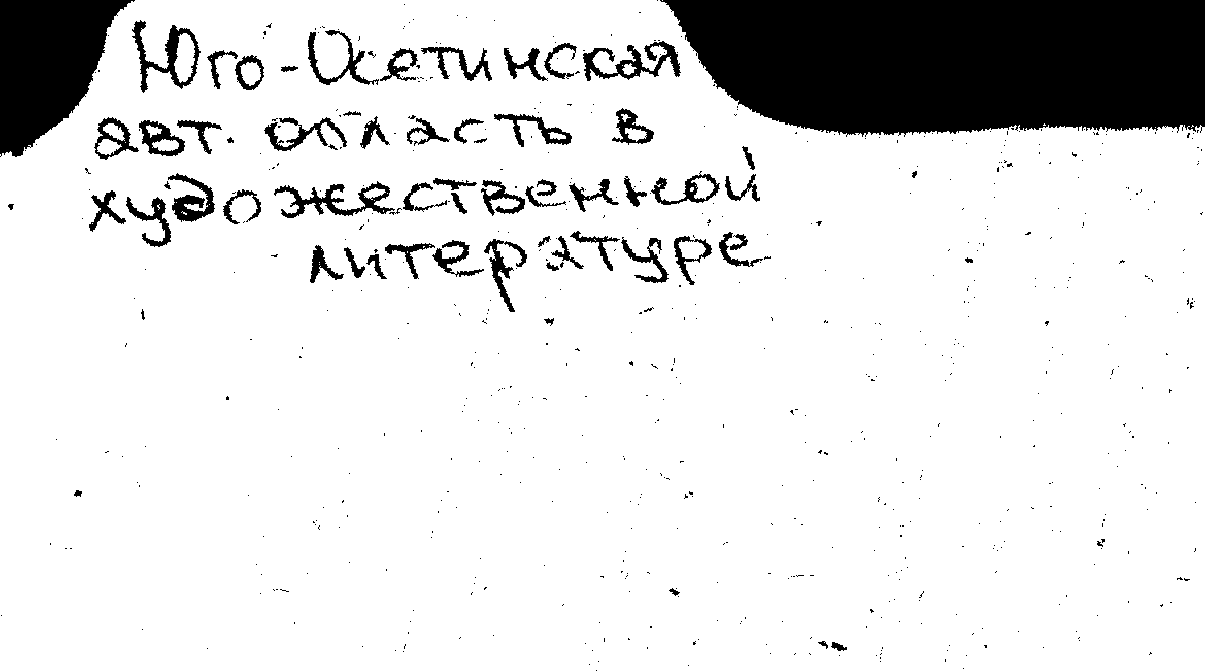 Юго-Осетинская
авт. область в
художественной
литературе